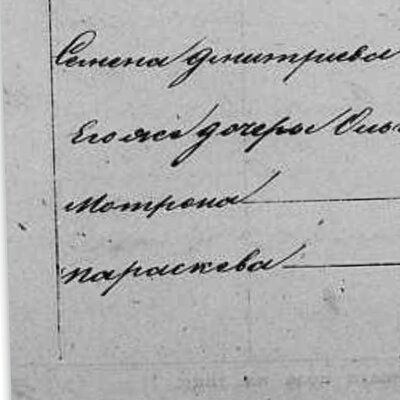 Семена Дмитриева
Его же дочеры Оль
Мотрона
Параскева